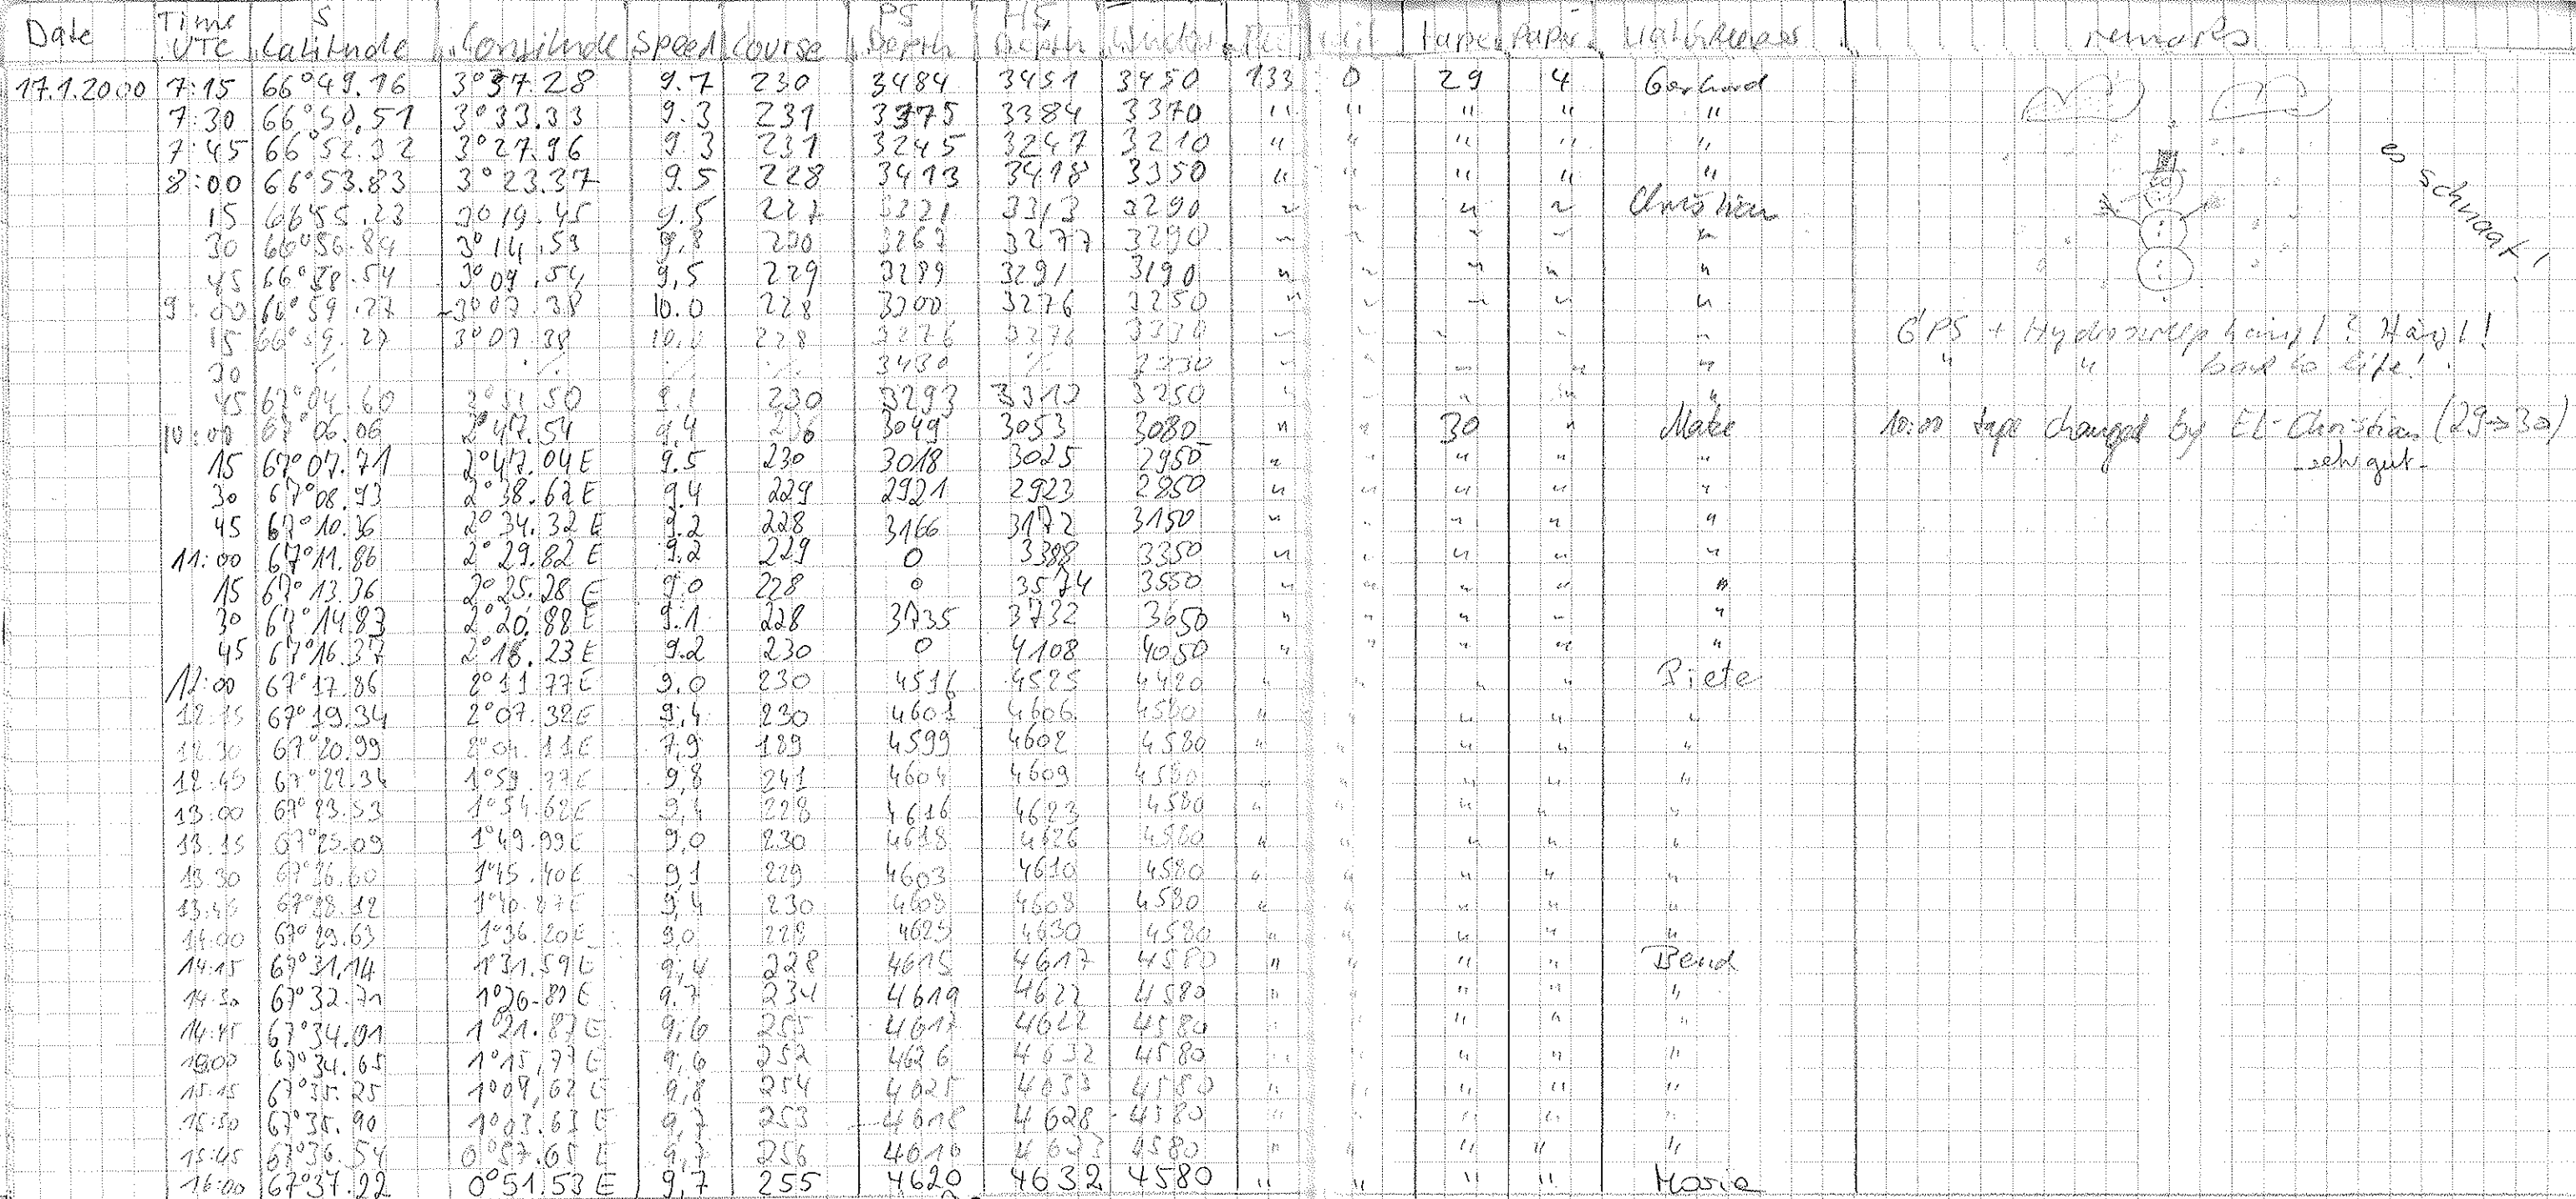 Date Time UTC S Latitude Longitude Speed Course PS Depth HS Depth Window tape Paper Watchkeeper remarks
17.1.2000 7:15 66°49.16 3°37.28 9.7 230 3484 3451 3450 133 0 29 4 Gerhard
7:30 66°50.51 3°33.33 9.3 231 3375 3384 3370 " " " " "
7:45 66°52.32 3°27.96 9.3 231 3245 3247 3210 " " " " "
8:00 66°53.83 3°23.37 9.5 228 3413 3418 3350 " " " " " es schnaat!
15 66°55.23 3°19.45 9.5 227 3321 3313 3290 " " " " Christian
30 66°56.84 3°14.53 9,8 230 3267 3277 3290 " " " " "
45 66°58.54 3°09.54 9,5 229 3289 3291 3190 " " " " "
9:00 66°59.27 3°07.38 10.0 228 3200 3276 3250 " " " " "
15 66°59.27 3°07.38 10.0 228 3276 3276 3330 " " " " " GPS + Hydrosweep hängt! Hängt!
30 ./. ./. ./. ./. 3430 ./. 3330 " " " " " " " back to life!
45 67°04.60 2°51.50 9.1 230 3293 3313 3250 " " " " "
10:00 67°06.06 2°47.54 9,4 236 3049 3053 3080 " " 30 " Maike 10:00 tape changed by EL-Christian (29→30)
15 67°07.71 2°47.04E 9.5 230 3018 3025 2950 " " " " " -sehr gut-
30 67°08.93 2°38.62E 9.4 229 2921 2923 2850 " " " " "
45 67°10.36 2°34.32 E 9.2 228 3166 3172 3150 " " " " "
11:00 67°11.86 2°29.82 E 9.2 229 0 3388 3350 " " " " "
15 67°13.36 2°25.28 E 9.0 228 0 3574 3550 " " " " "
30 67°14.83 2°20.88 E 9.1 228 3735 3732 3650 " " " " "
45 67°16.37 2°16.23 E 9.2 230 0 4108 4050 " " " " "
12:00 67°17.86 2°11.77E 9.0 230 4516 4525 4420 " " " " Piete
12:15 67°19.34 2°07.32E 9,4 230 4601 4606 4580 " " " " "
12:30 67°20.99 2°04.11E 7,9 189 4599 4602 4580 " " " " "
12:45 67°22.34 1°59.77E 9,8 241 4604 4609 4580 " " " " "
13:00 67°23.53 1°54.62E 9,4 228 4616 4623 4580 " " " " "
13:15 67°25.09 1°49.99E 9,0 230 4618 4626 4580 " " " " "
13:30 67°26.60 1°45.40E 9,1 229 4603 4610 4580 " " " " "
13:45 67°28.12 1°40.87E 9,4 230 4608 4608 4580 " " " " "
14:00 67°29.63 1°36.20E 9,0 228 4625 4630 4580 " " " " "
14:15 67°31.14 1°31.59E 9,4 228 4615 4617 4580 " " " " Bernd
14:30 67°32.71 1°26.89E 9.7 234 4619 4622 4580 " " " " "
14:45 67°34.01 1°21.87E 9,6 255 4617 4622 4580 " " " " "
15:00 67°34.65 1°15,77E 9,6 252 4626 4632 4580 " " " " "
15:15 67°35.25 1°09,62 E 9,8 254 4625 4633 4580 " " " " "
15:30 67°35.90 1°03.63 E 9,7 253 4618 4628 4580 " " " " "
15:45 67°36.54 0°57.65 E 9,7 256 4616 4633 4580 " " " " "
16:00 67°37.22 0°51.53 E 9,7 255 4620 4632 4580 " " " " Maria